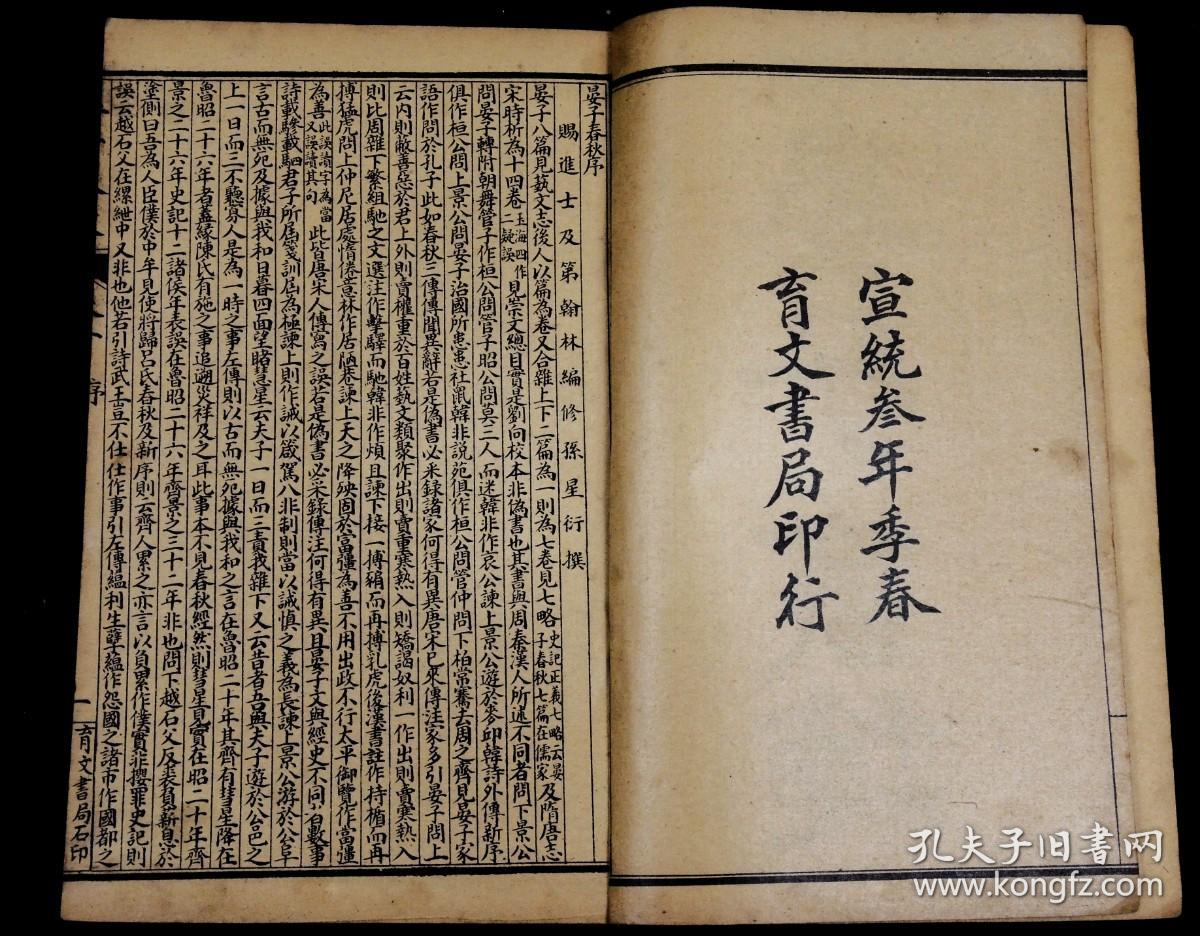 宣統叁年季春
育文書局印行
晏子春秋序
賜進士及第翰林編修孫星衍撰
晏子八篇見藝文志後人以篇為卷又合雜上下二篇為一則為七卷見七略史記正義七略云晏子春秋七篇在儒家及隋唐志
宋時析為十四卷玉海四作二疑誤見崇文總目實是劉向校本非偽書也其書與周秦漢人所述不同者問下景公
問晏子轉附朝舞管子作桓公問管子昭公問莫三人而迷韓非作哀公諫上景公遊於麥邱韓詩外傳新序
俱作桓公問上景公問晏子治國所患患社鼠韓非說苑俱作桓公問管仲問下柏常騫去周之齊見晏子家
語作問於孔子此如春秋三傳傳聞異辭若是偽書必采錄諸家何得有異唐宋已來傳注家多引晏子問上
云內則蔽善惡於君上外則賣權重於百姓藝文類聚作出則賣重寒熱入則矯謁奴利一作出則賣寒熱入
則比周雜下繁組馳之文選注作擊驛而馳韓非作煩且諫下接一搏貊而再搏乳虎後漢書註作持楯而再
搏猛虎問上仲尼居處惰倦意林作居陋巷諫上天之降殃固於富彊為善不用出政不行太平御覽作當彊
為善此誤讀字為當又誤讀其句此皆唐宋人傳寫之誤若是偽書必采錄傳注何得有異且晏子文與經史不同者數事
詩載驂載駟君子所屆箋訓屆為極諫上則作誡以箴駕八非制則當以誡慎之義為長諫上景公游於公阜
言古而無死及據與我和日暮四面望睹彗星云夫子一日而三責我雜下又云昔者吾與夫子遊於公邑之
上一日而三不聽寡人是為一時之事左傳則以古而無死據與我和之言在魯昭二十年其齊有彗星降在
魯昭二十六年者蓋緣陳氏有施之事追遡災祥及之耳此事本不見春秋經然則彗星見實在昭二十年齊
景之二十六年史記十二諸侯年表誤在魯昭二十六年齊景之三十二年非也問下越石父反裘負薪息於
塗側曰吾為人臣僕於中牟見使將歸呂氏春秋及新序則云齊人累之亦言以負累作僕實非攖罪史記則
誤云越石父在縲紲中又非也他若引詩武王豈不仕仕作事引左傳蘊利生孽蘊作怨國之諸市作國都之
序
一
育文書局石印
孔夫子旧书网
www.kongfz.com